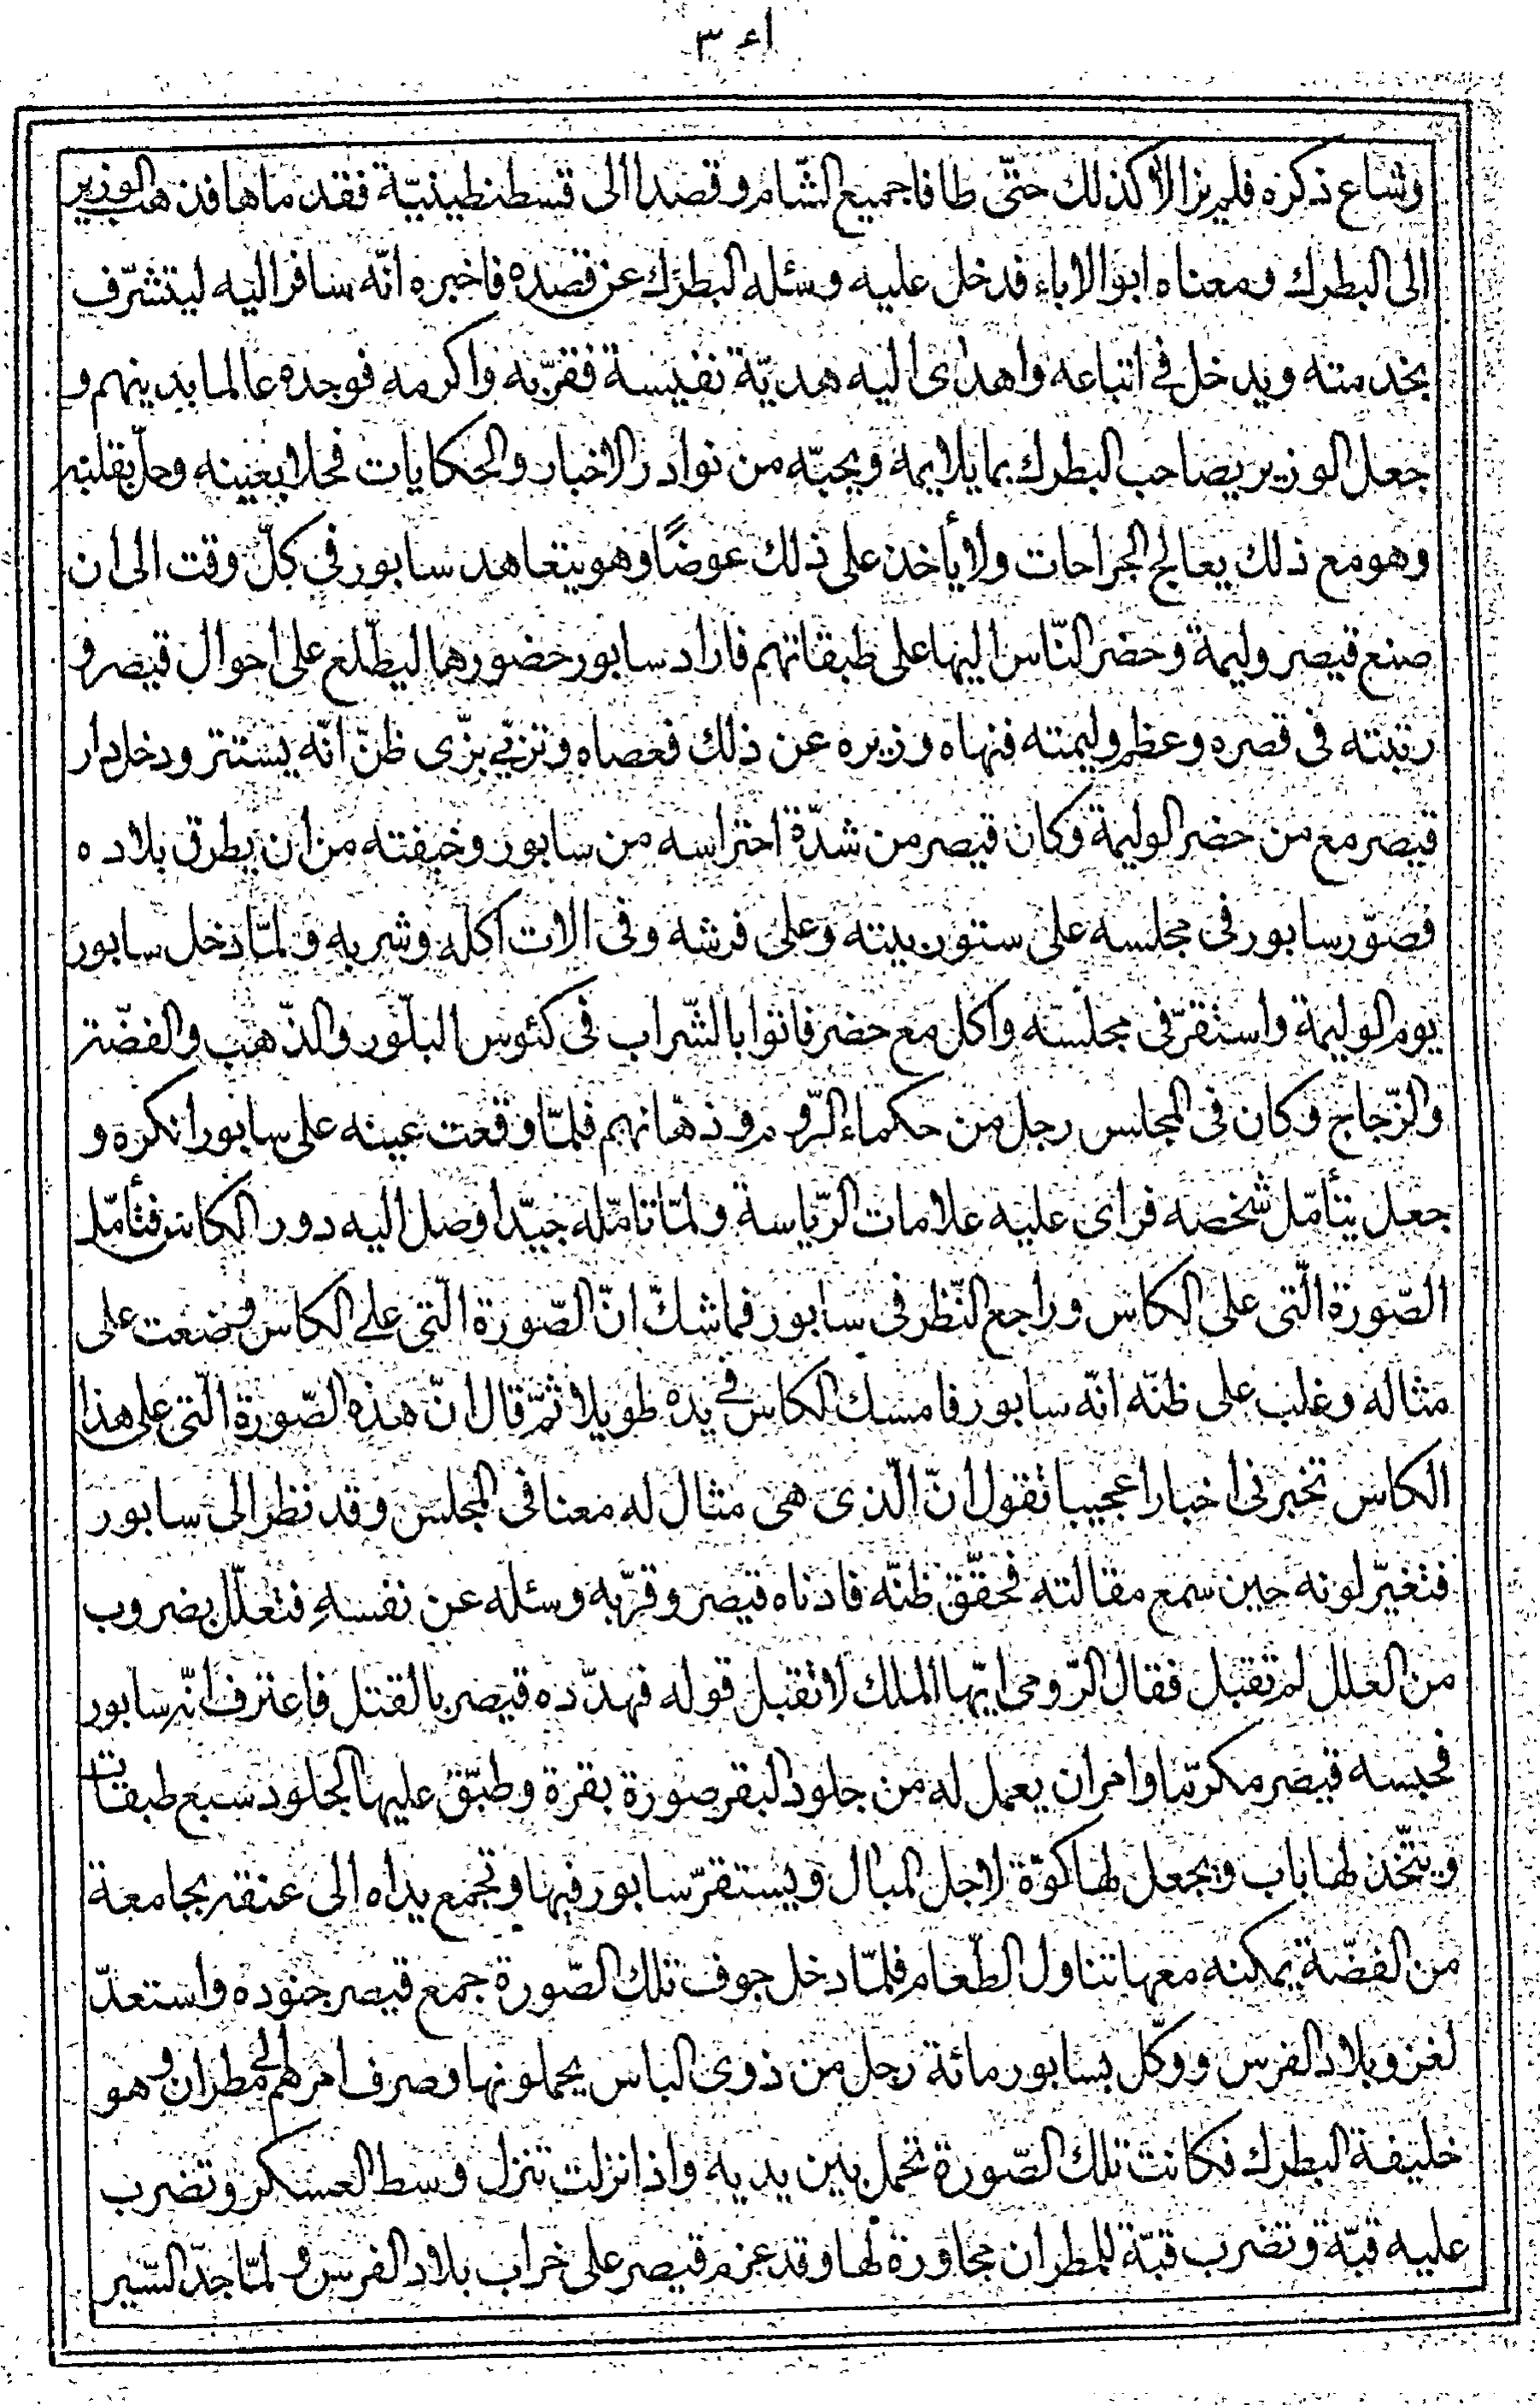 ٣٤١
وشاع ذكره فلم يزالا كذلك حتّى طافا جميع الشّام وقصدا الى قسطنطينيّة فقدماها فذهب الوزير
الى البطرك ومعناه ابو الاباء فدخل عليه وسئله البطرك عن قصده فاخبره انّه سافر اليه ليتشرّف
بخدمته ويدخل في اتباعه واهدى اليه هديّة نفيسة فقرّبه واكرمه فوجده عالما بدينهم و
جعل الوزير يصاحب البطرك بما يلايمه ويحبّه من نوادر الاخبار والحكايات فحلا بعينه وحلّ بقلبه
وهو مع ذلك يعالج الجراحات ولا يأخذ على ذلك عوضًا وهو يتعاهد سابور في كلّ وقت الى ان
صنع قيصر وليمة وحضر النّاس اليها على طبقاتهم فاراد سابور حضورها ليطّلع على احوال قيصر و
رتبته فى قصره وعظم وليمته فنهاه وزيره عن ذلك فعصاه وتزيّي بزّى ظنّ انّه يستتر ودخل دار
قيصر مع من حضر الوليمة وكان قيصر من شدّة احتراسه من سابور وخيفته من ان يطرق بلاده
فصوّر سابور فى مجلسه على ستور بيته وعلى فرشه وفى الات اكله وشربه ولمّا دخل سابور
يوم الوليمة واستقرّ فى مجلسه واكل مع حضر فاتوا بالشّراب فى كئوس البلّور والذّهب والفضّة
والزّجاج وكان فى المجلس رجل من حكماء الرّوم وذهانهم فلمّا وقعت عينه على سابور انكره و
جعل يتأمّل شخصه فراى عليه علامات الرّياسة ولمّا تامّله جيّدا وصل اليه دور الكاس فتأمّل
الصّورة الّتى على الكاس وراجع النّظر فى سابور فما شكّ انّ الصّورة الّتى على الكاس وضعت على
مثاله وغلب على ظنّه انّه سابور فامسك الكاس في يده طويلا ثمّ قال انّ هذه الصّورة الّتى على هذا
الكاس تخبرنى اخبارا عجيبا تقول انّ الّذى هى مثال له معنا فى المجلس وقد نظر الى سابور
فتغيّر لونه حين سمع مقالته فحقّق ظنّه فادناه قيصر وقرّبه وسئله عن نفسهِ فتعلّل بضروب
من العلل لم تقبل فقال الرّومى ايّها الملك لا تقبل قوله فهدّده قيصر بالقتل فاعترف انّه سابور
فحبسه قيصر مكرّما وامر ان يعمل له من جلود البقر صورة بقرة وطبّق عليها الجلود سبع طبقات
ويتّخذ لها باب ويجعل لها كوّة لاجل المبال ويستقرّ سابور فيها وتجمع يداه الى عنقه بجامعة
من الفضّة يمكنه معها تناول الطّعام فلمّا دخل جوف تلك الصّورة جمع قيصر جنوده واستعدّ
لغزو بلاد الفرس ووكّل بسابور مائة رجل من ذوى الباس يحملونها وصرف امرهم الى مطران وهو
خليفة البطرك فكانت تلك الصّورة تحمل بين يديه واذا نزلت تنزل وسط العسكر وتضرب
عليه قبّة وتضرب قبّة للمطران مجاورة لها وقد عزم قيصر على خراب بلاد الفرس ولمّا جدّ السّير